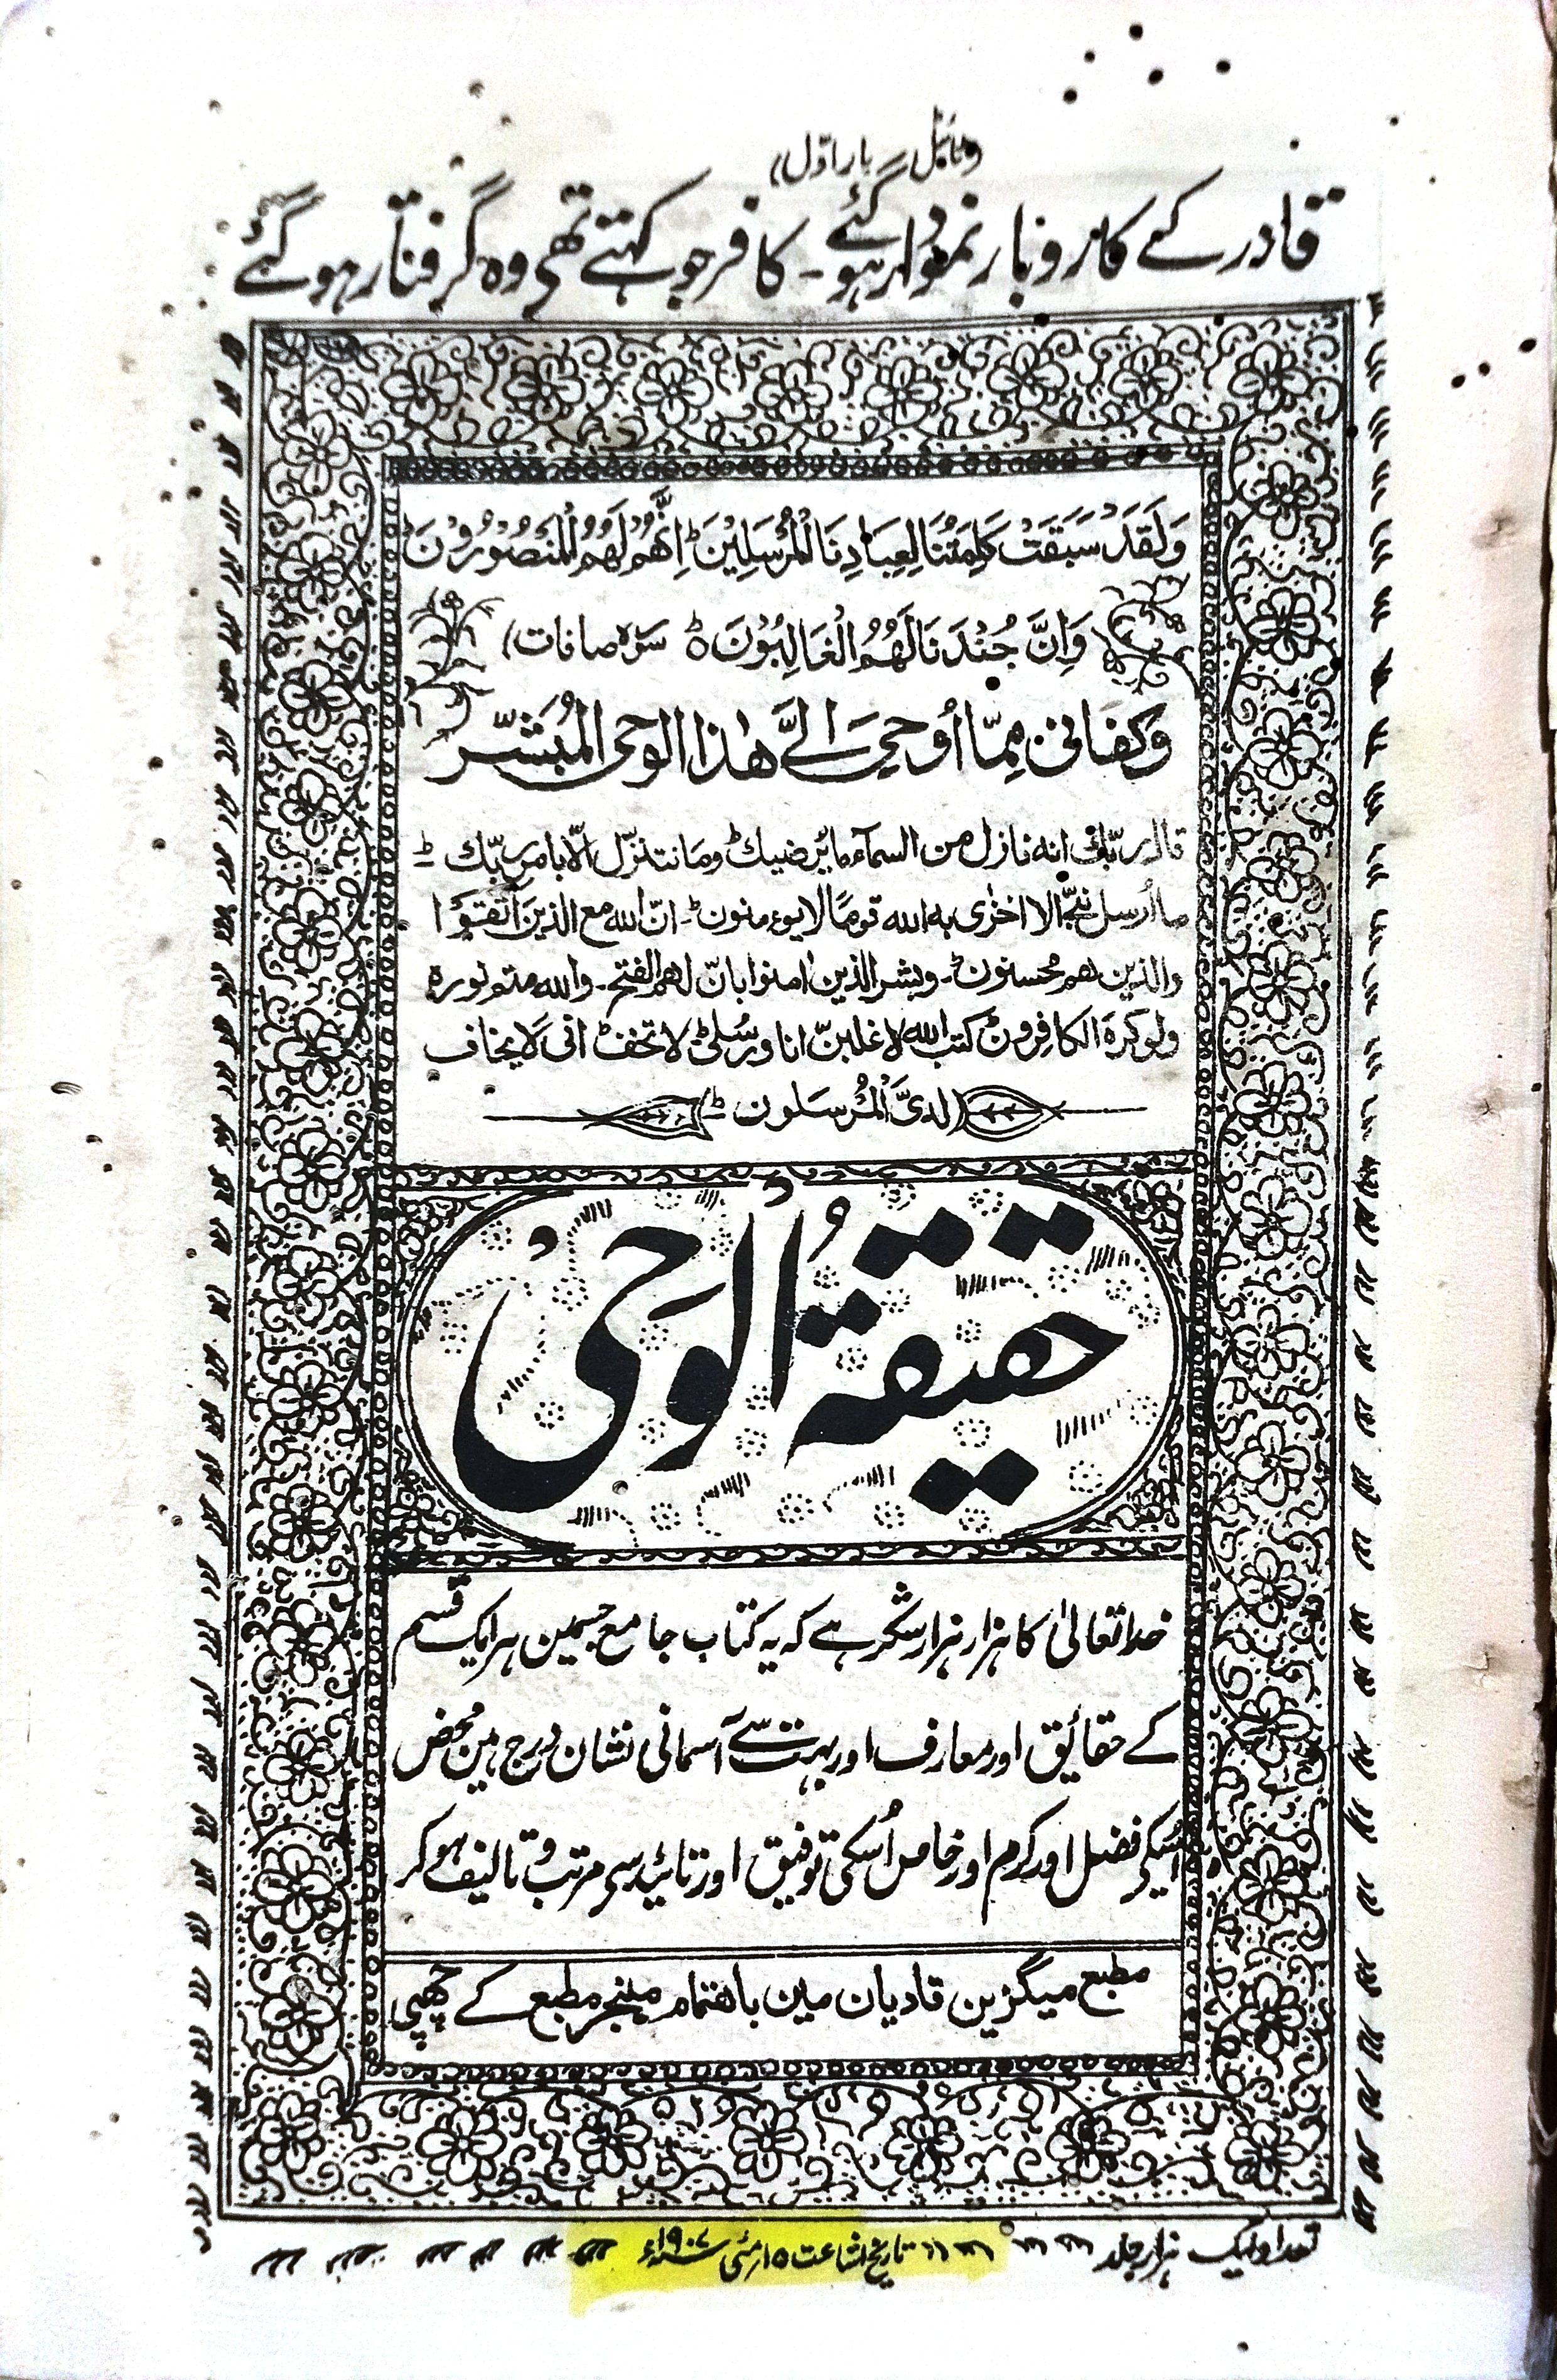 (ٹائٹل بار اوّل)
قادر کے کاروبار نمودار ہو گئے ۔ کافر جو کہتے تھے وہ گرفتار ہو گئے
وَلَقَدْ سَبَقَتْ كَلِمَتُنَا لِعِبَادِنَا الْمُرْسَلِيْنَ ؕ اِنَّهُمْ لَهُمُ الْمَنْصُوْرُوْنَ ؕ
وَاِنَّ جُنْدَنَا لَهُمُ الْغَالِبُوْنَ ؕ سورہ صافات)
وَكفَانى مِمّا اُوحِيَ اِلَيَّ هٰذا الوحى المُبَشّر
قال ربّك انه نازل من السمآء ما يُرضيك ؕ وما نتنزّل الّا بامر ربّك ؕ
ما اُرسل نبيٌّ الا اخزٰى به الله قومًا لا يؤمنون ؕ۔ انّ الله مع الذين اتّقَوْا
والذين هم محسنون ؕ۔ وبشر الذين اٰمنوا بانّ لهم الفتح۔ والله متم نوره
ولو كرهَ الكافِرون ؕ كتب الله لاغلبنّ انا ورُسُلى ؕ لا تخف ؕ انى لَا يخاف
لدىَّ الْمُرسَلون ؕ
حقیقۃُ الْوَحْیُ
خدا تعالیٰ کا ہزار ہزار شکر ہے کہ یہ کتاب جامع جسمین ہر ایک قسم
کے حقائق اور معارف اور بہت سے آسمانی نشان درج ہین محض
اُسکے فضل اور کرم اور خاص اُسکی توفیق اور تائید سے مرتب و تالیف ہو کر
مطبع میگزین قادیان مین باہتمام منیجر مطبع کے چھپی
تعداد ایک ہزار جلد
تاریخ اشاعت ۱۵ مئی ۱۹۰۷ء